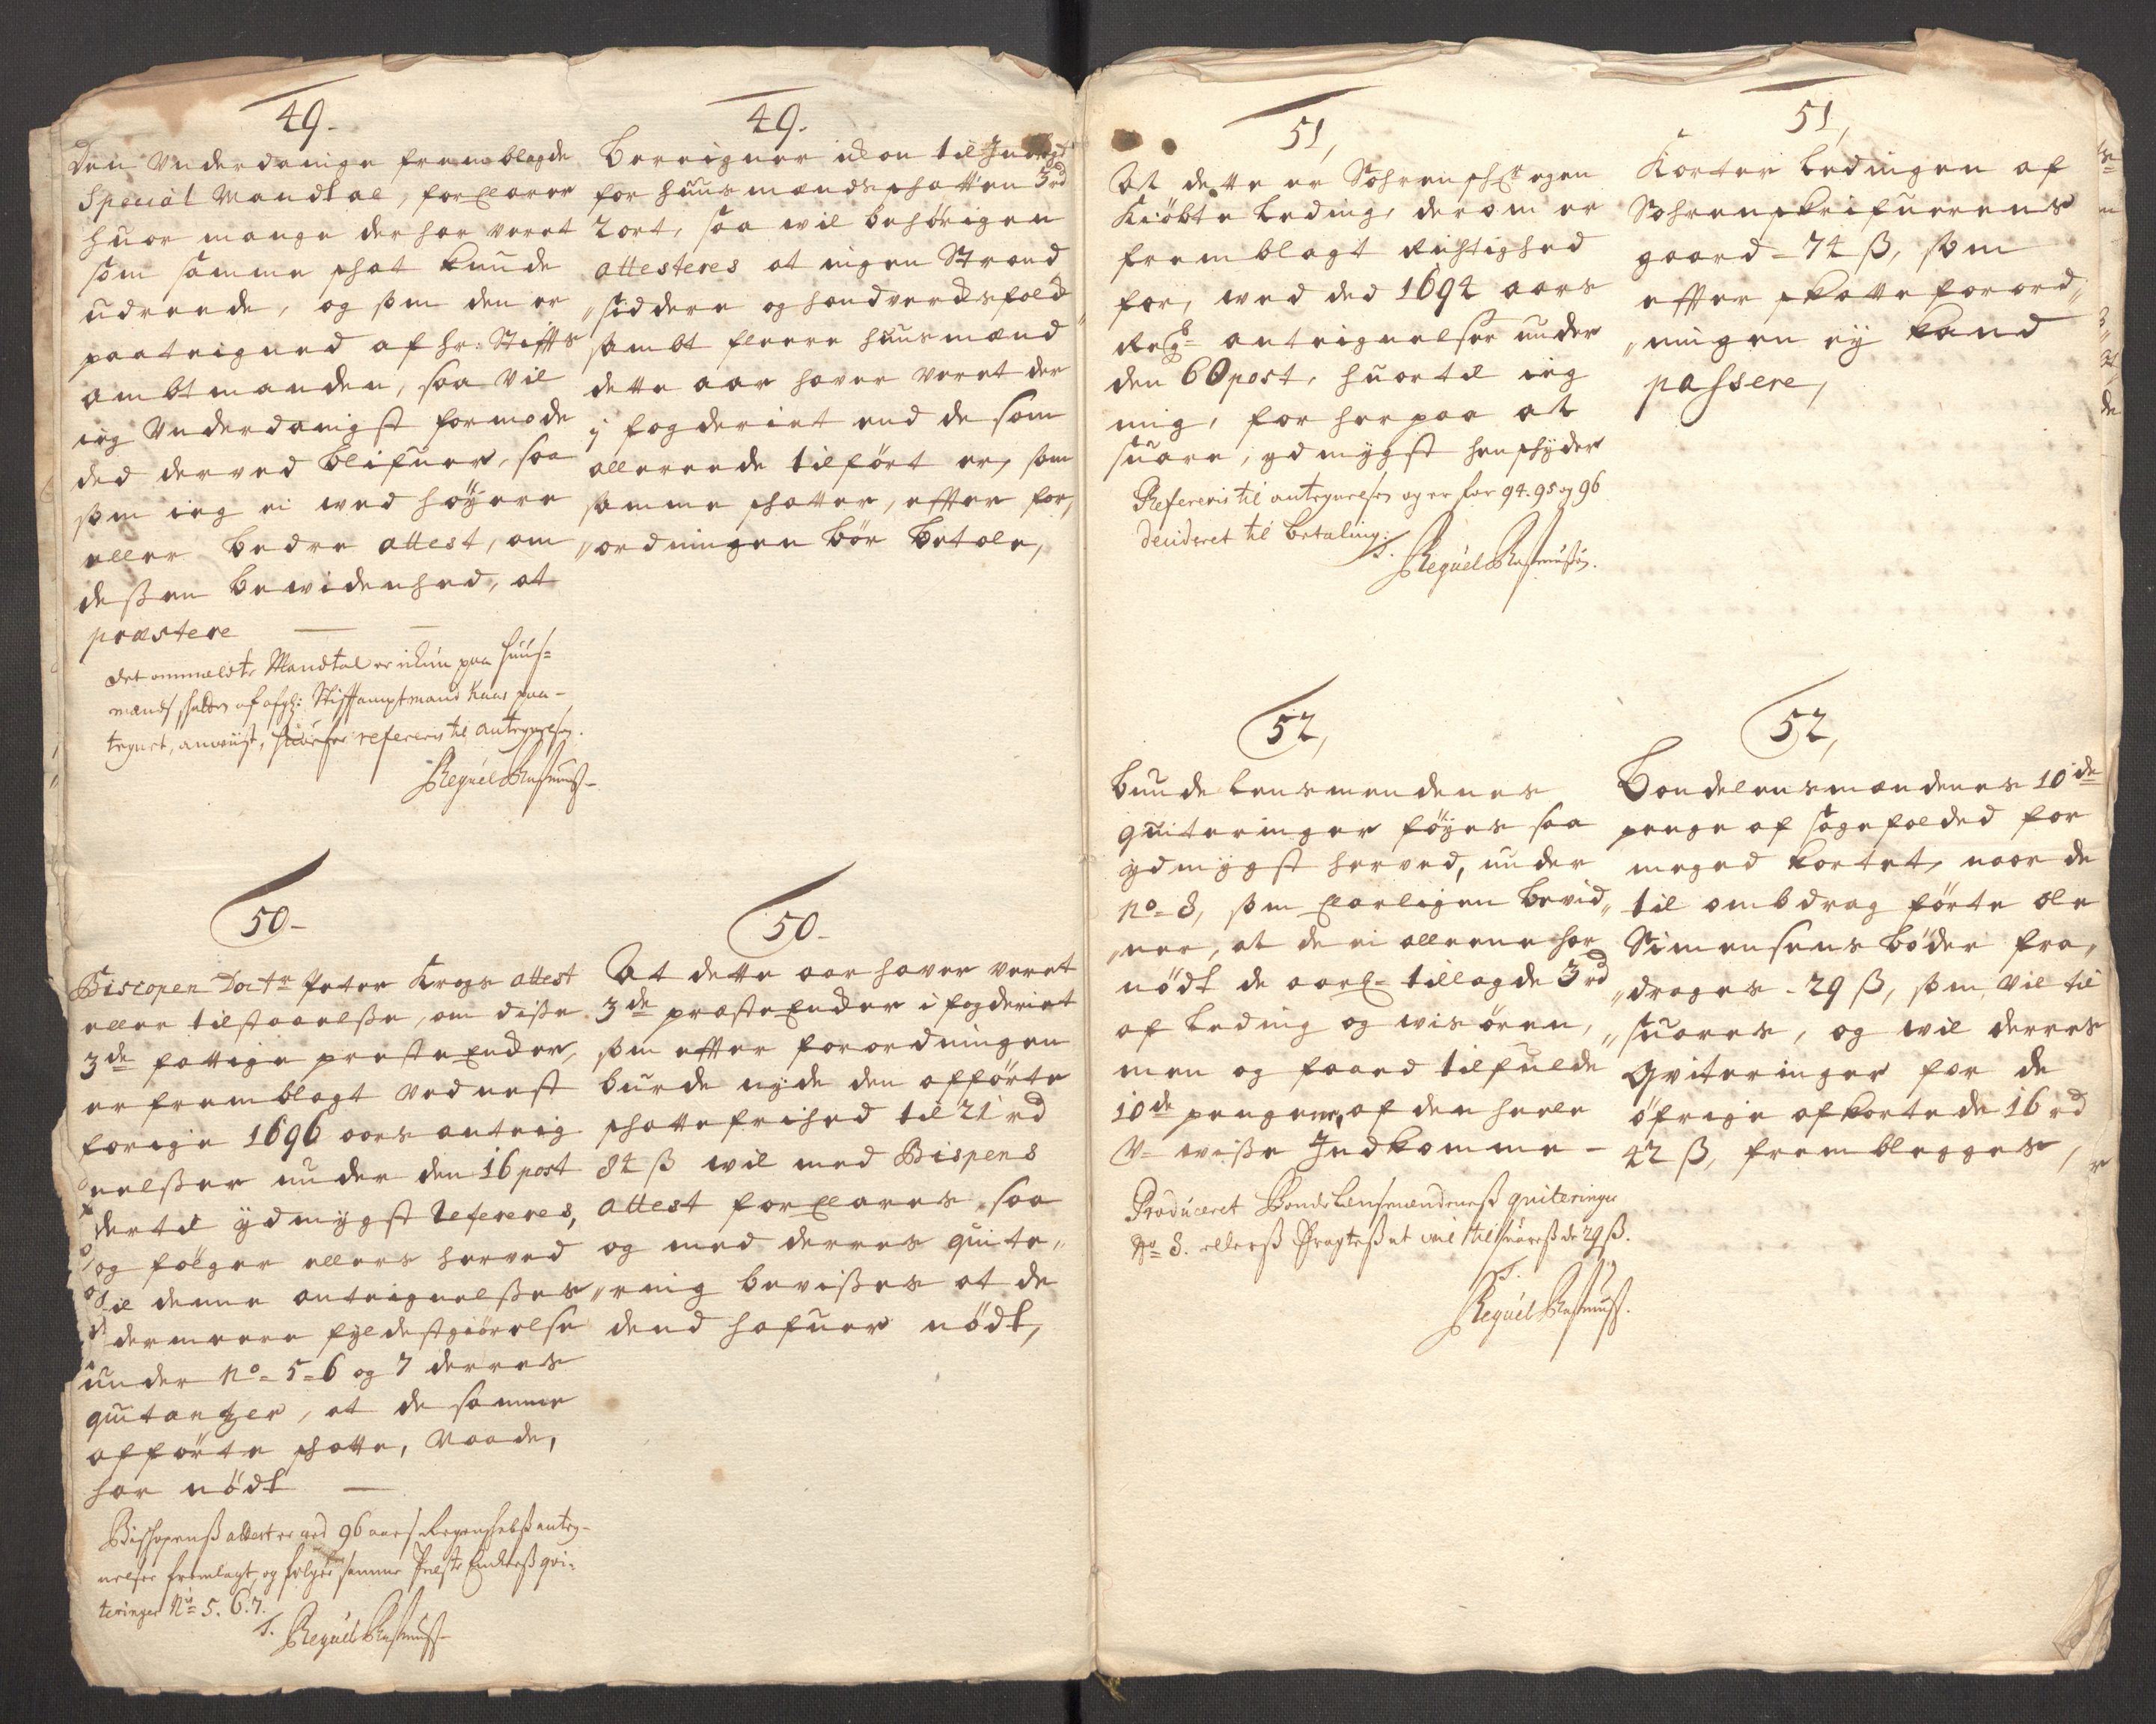 49.
Den Underdanige fremblagde
Special Mandtal, forclarer
huor mange der har veret
som samme skat kunde
udreede, og som den er
paateigned af hr: Stiffts
ambtmanden, saa vil
ieg Underdanigst formode
ded derved blifuer, saa
som ieg ei med höyere
eller bedre attest, om
dessen bewidenhed, at
præstere
det ommeldte Mandtal er ikun paa Huus=
mands skatten af afg: Stifftamptmand Kaas paa-
tegnet, anviist, refereris til antegnelsen.
Reguel Rasmuss
49.
Bereigner ikon til Indtegt
for huusmandsskatten 3 rd
2 ort, saa wil behörigen
attesteres at ingen Strand
„siddere og handverksfolk
sambt fleere huusmænd
dette aar haver veret der
i fogderiet end de som
allereede tilfört er, som
samme skatter, effter for„
„ordningen bör betale,
50-
Biscopen Doctr Peter Krogs attest
eller tilstaaelsse, om disse
3de fattige presteEncker,
er fremblagt ved nest
forige 1696 aars anteig
nelsser under den 16 post
dertil ydmygst Refereres,
og fölger ellers herved
til denne anteignelsses
dermeere fyldestgiörelse
under No= 5=6 og 7 derres
quitantzer, at de samme
afförte skatte, Maade,
har nödt
Bischopenss attest er ved 96 aars Regenskabss anteg-
nelser fremlagt, og følger samme Preste Enckerss qvi-
teringer No= 5. 6. 7.
T. Reguel Rasmuss
50-
At dette aar haver veret
3de præsteEncker i fogderiet
som effter forordningen
burde nyde den afförte
skattefrihed til 21 rd
84 ß wil med Bispens
attest forclares saa
og med derres quite„
„ring bevisses at de
dend hafuer nödt,
51,
At dette er Sohrenskr: egen
Kiöbte leding, derom er
fremblagt Rigtighed
for, med ded 1694 aars
Regb= anteignelser under
den 60 post, huortil ieg
mig, for herpaa at
suare, ydmygst henskyder
Refereris til antegnelsen og er for 94. 95 og 96
decideret til betaling.
T. Reguel Rasmussen.
51,
Korter ledingen af
Sohrenskrifuerens
gaard = 74 ß, som
effter skatteforord„
„ningen ey kand
passere,
52,
bunde lensmendenes
quiteringer föyes saa
ydmygst herved, under
No= 8, som clarligen bevid„
„ner, at de ei alleene har
nödt de aarl= tillagde 3 rd
af leding og wisören,
men og faaed tilfulde
10de pengene, af den heele
U= wisse Indkomme -
Produceret Bonde Lensmændeness quiteringer
No 8. ellerss Fragtess at vil tilsuaress de 29 ß.
T.
Reguel Rasmuss.
52,
Bondelensmændenes 10de
penge af sagefalded for
meged kortet, naar de
til ombdrag förte Ole
Simensens böder fra„
„drages - 29 ß, som vil til
„suares, og wil derres
Qviteringer for de
öfrige afkortede 16 rd
42 ß, fremblegges,